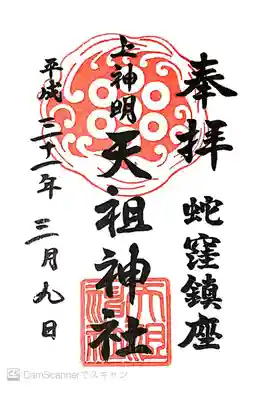 奉拝
蛇窪鎮座
上神明
天祖神社
平成三十一年三月九日
天祖神社
CamScannerでスキャン